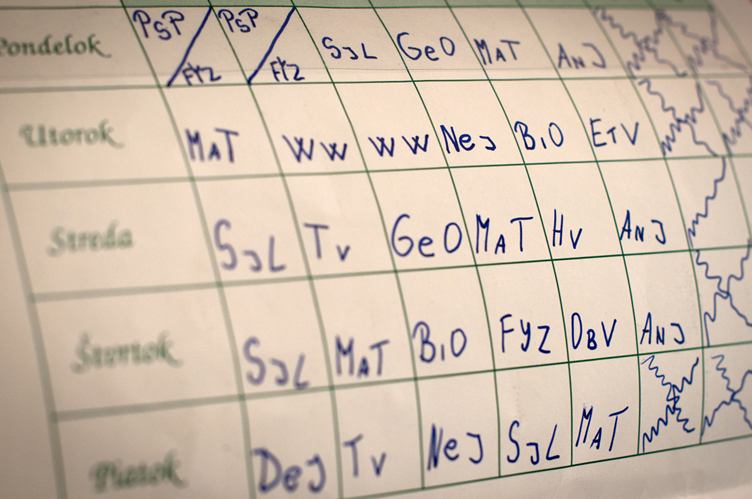 Pondelok PSP/FYZ PSP/FYZ SJL GeO MAT ANJ
Utorok MAT WW WW NeJ BiO ETV
Streda SJL TV GeO MAT HV ANJ
Štvrtok SJL MAT BiO FYZ DBV ANJ
Piatok DeJ TV NeJ SJL MAT